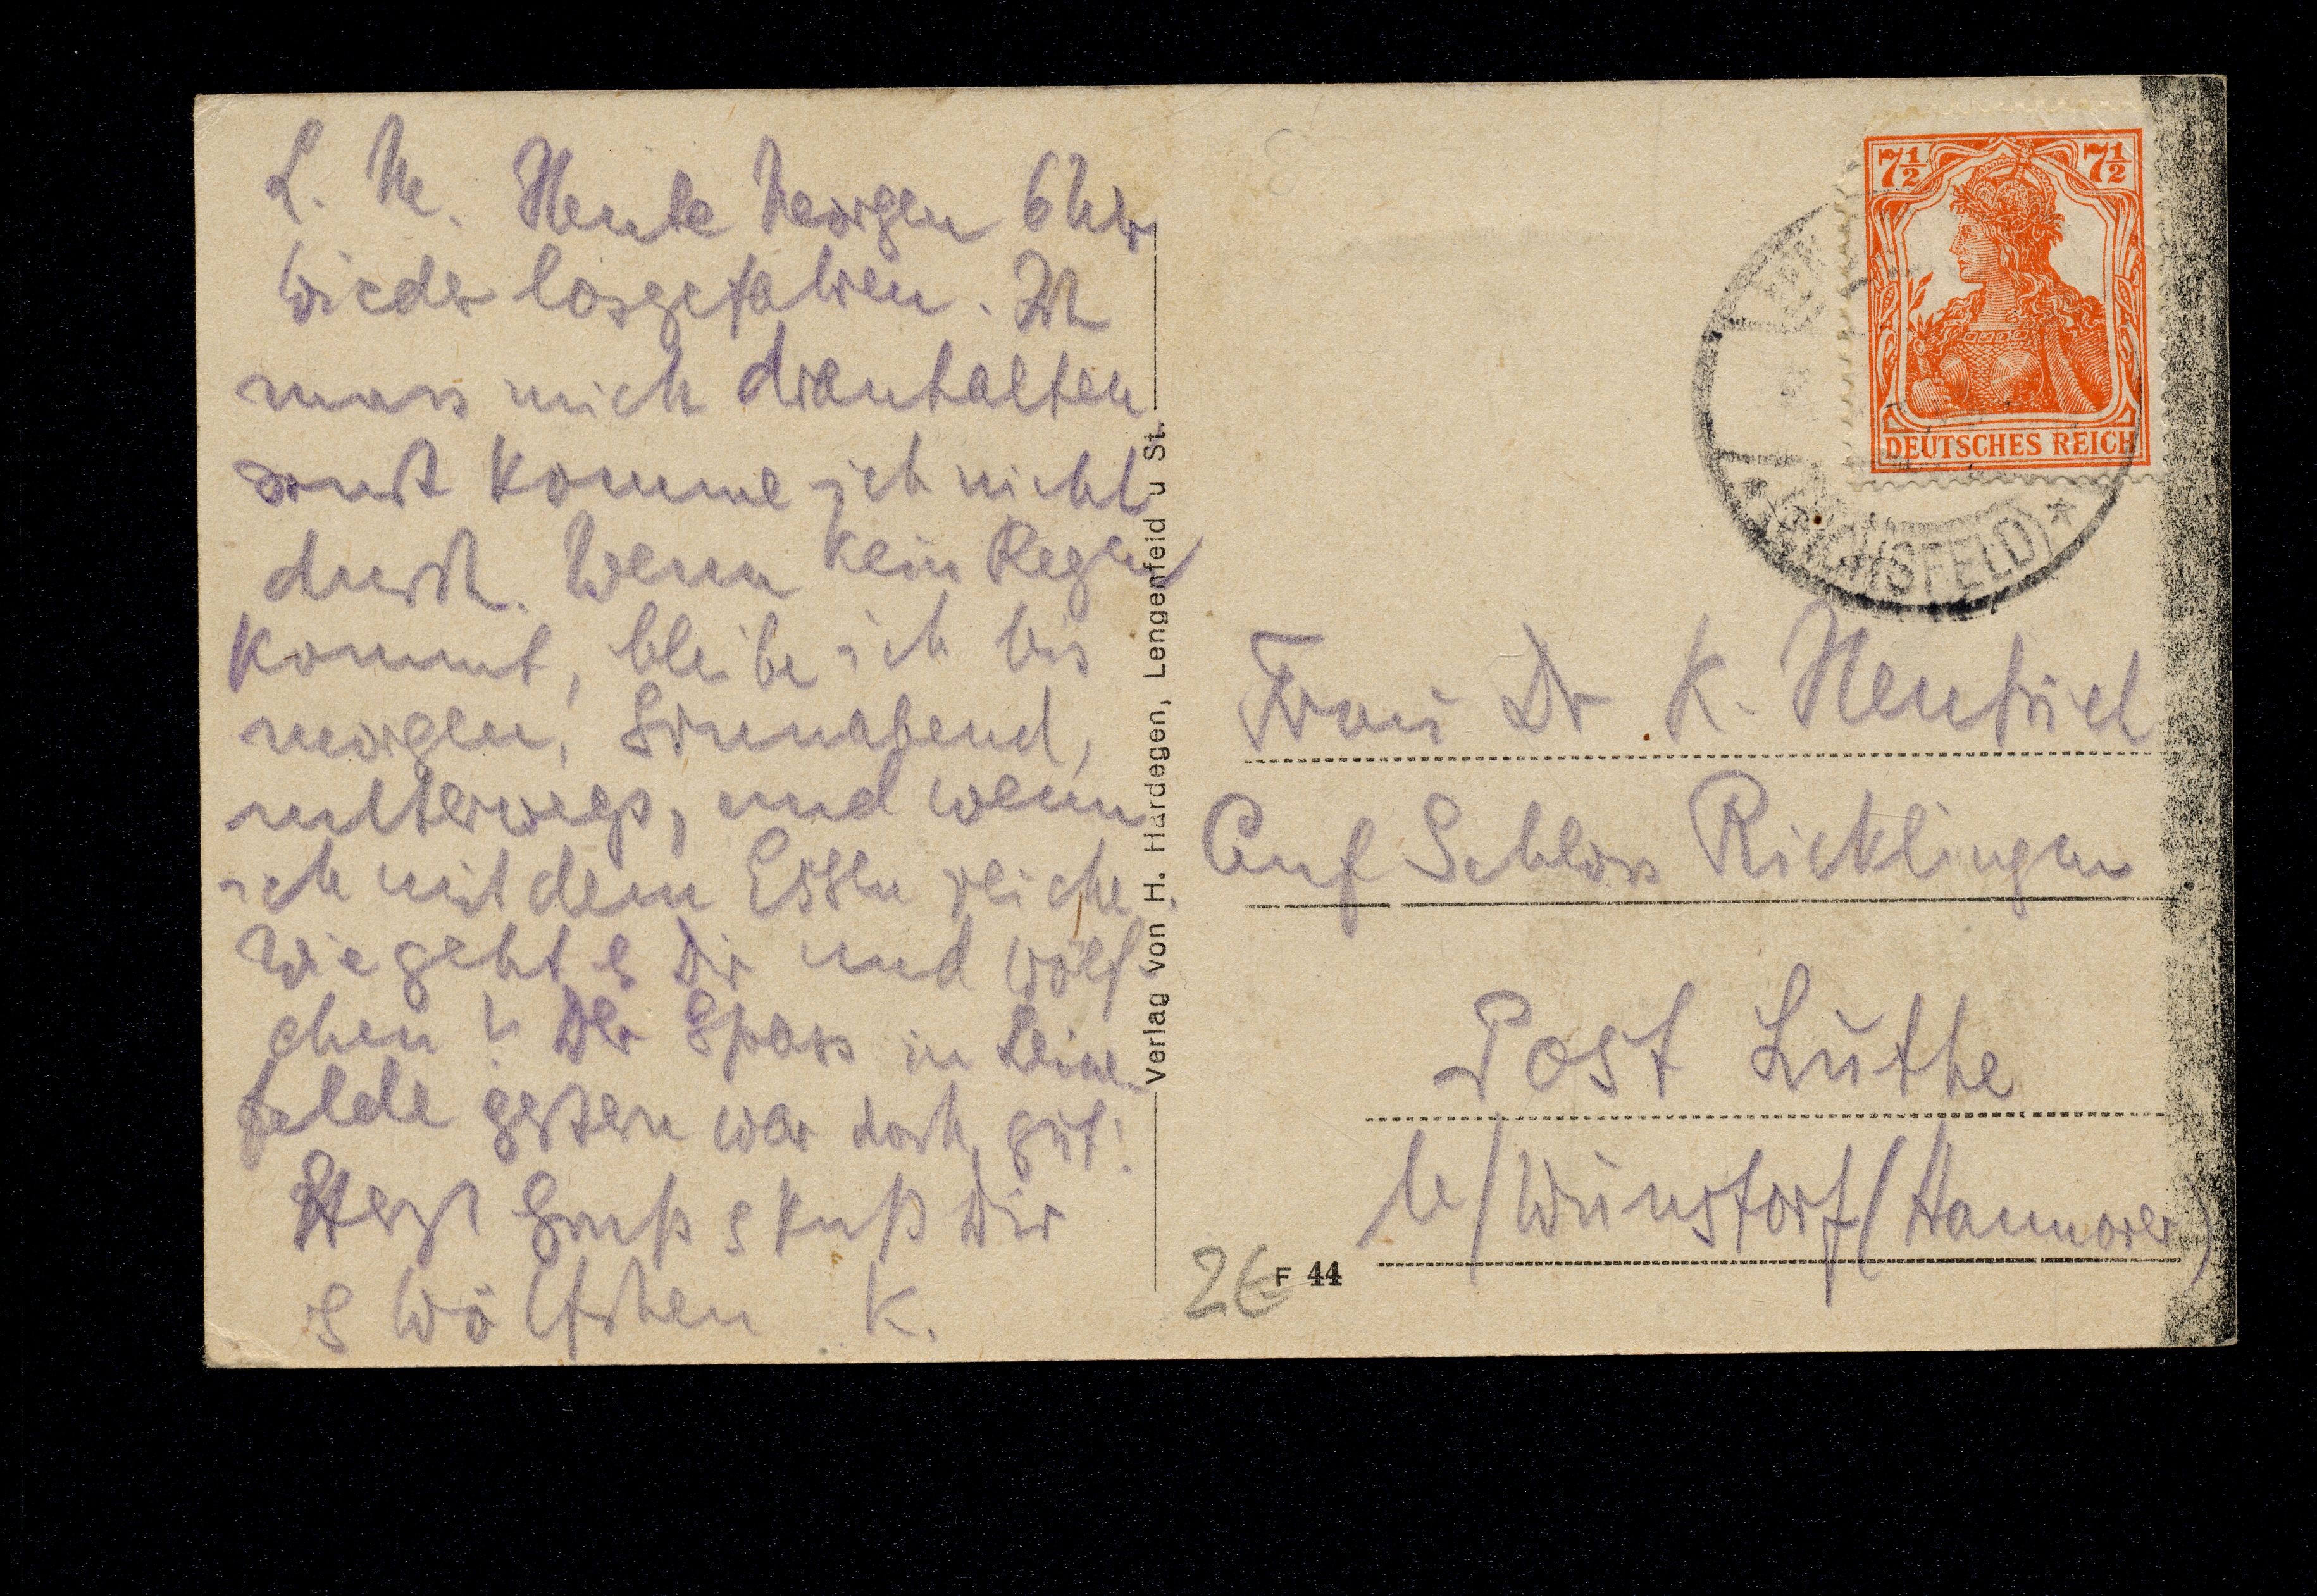 L. M. Heute Morgen 6 Uhr
wieder losgefahren. Ich
muss mich dranhalten
sonst komme ich nicht
durch. Wenn kein Regen
kommt, bleibe ich bis
morgen, Sonnabend,
unterwegs, und wenn
ich mit dem Essen reiche.
Wie geht es Dir und Wölf-
chen? Der Spass in Leine-
felde gestern war doch gut!
Herzl Gruß & Kuß Dir
& Wölfchen K.
Verlag von H. Hardegen, Lengenfeld u St.
7½ 7½
DEUTSCHES REICH
(EICHSFELD)
Frau Dr K. Hentrich
Auf Schloss Ricklingen
Post Luthe
b/Wunstorf (Hannover)
2€
F 44